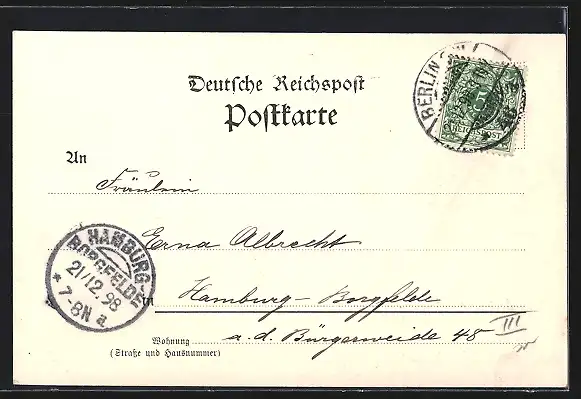 Deutsche Reichspost
Postkarte
BERLIN
REICHSPOST
An
Fräulein
Erna Albrecht
HAMBURG-
BORGFELDE
21/12.98
* 7-8N a.
in
Hamburg-Borgfelde
Wohnung
a. d. Bürgerweide 48 III
(Straße und Hausnummer)